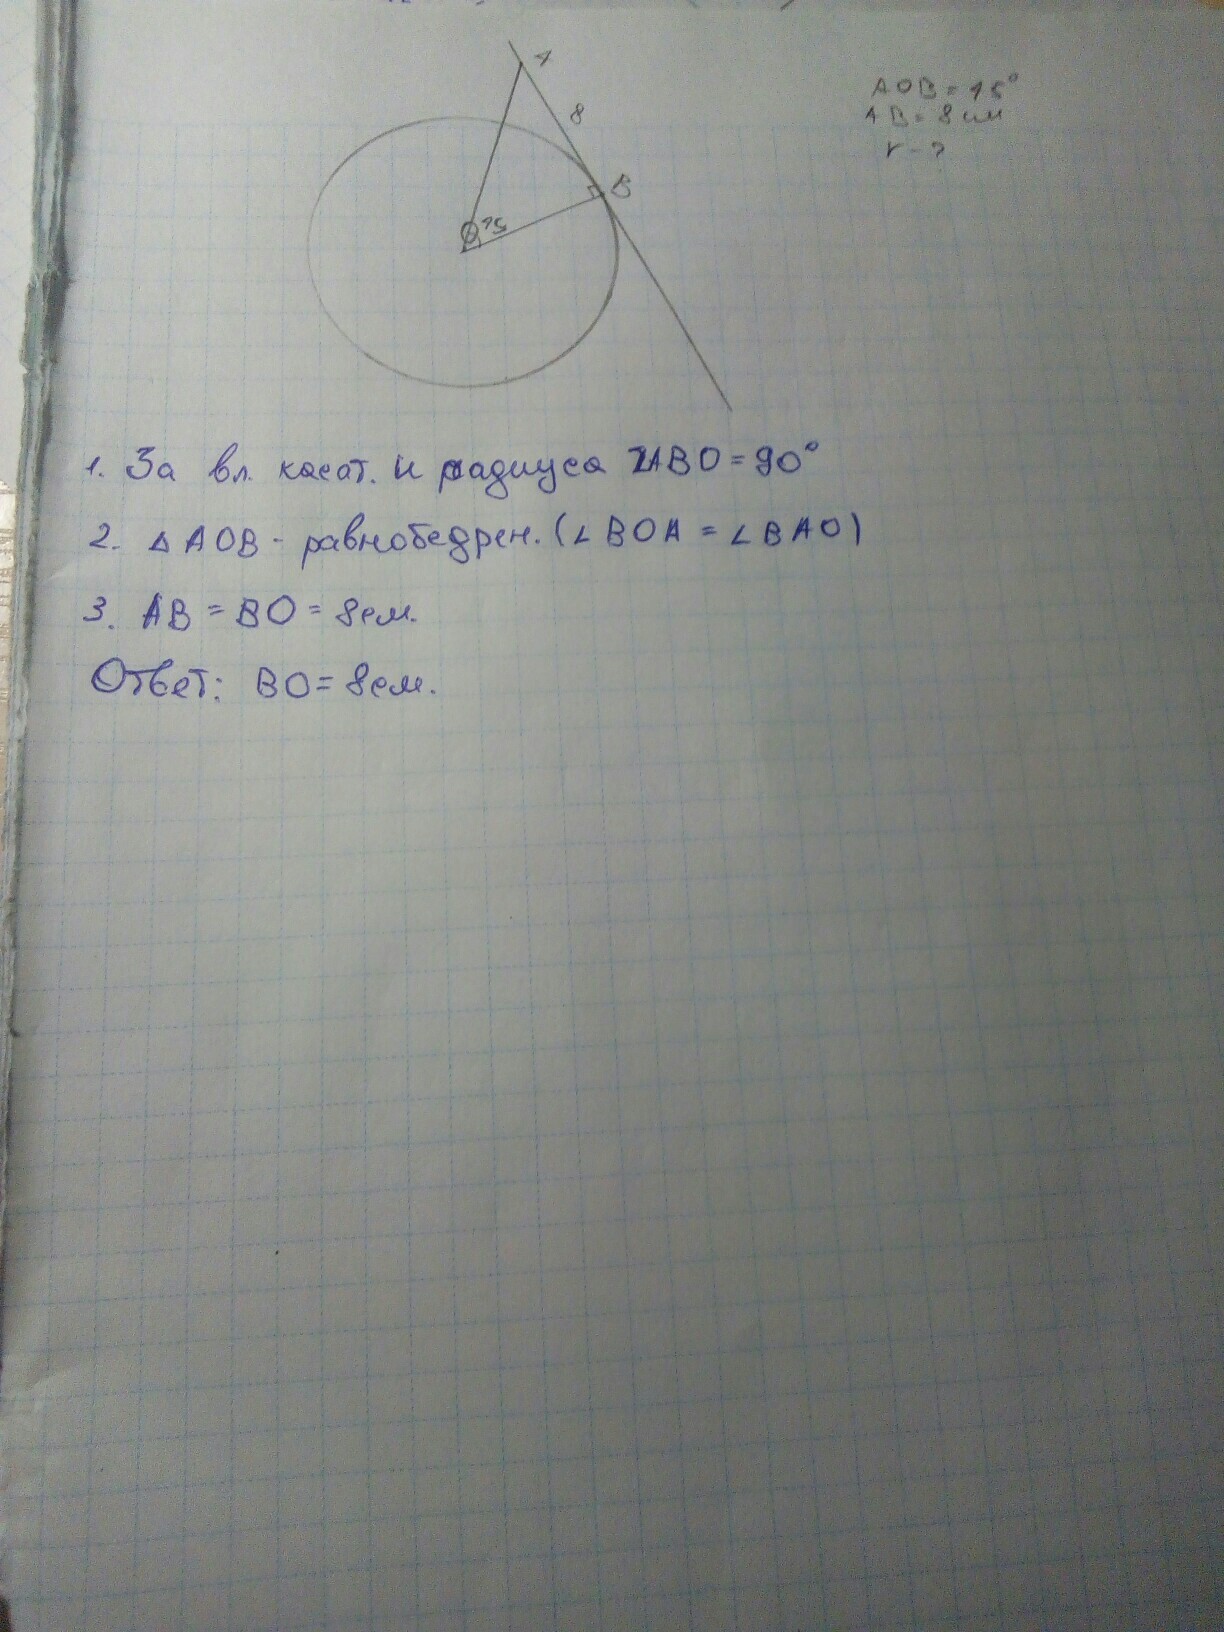 A
8
B
O
AOB = 45°
AB = 8 см
r - ?
1. За вл. касат. и радиуса ∠ABO = 90°
2. △ AOB - равнобедрен. (∠BOA = ∠BAO)
3. AB = BO = 8см.
Ответ: BO = 8см.